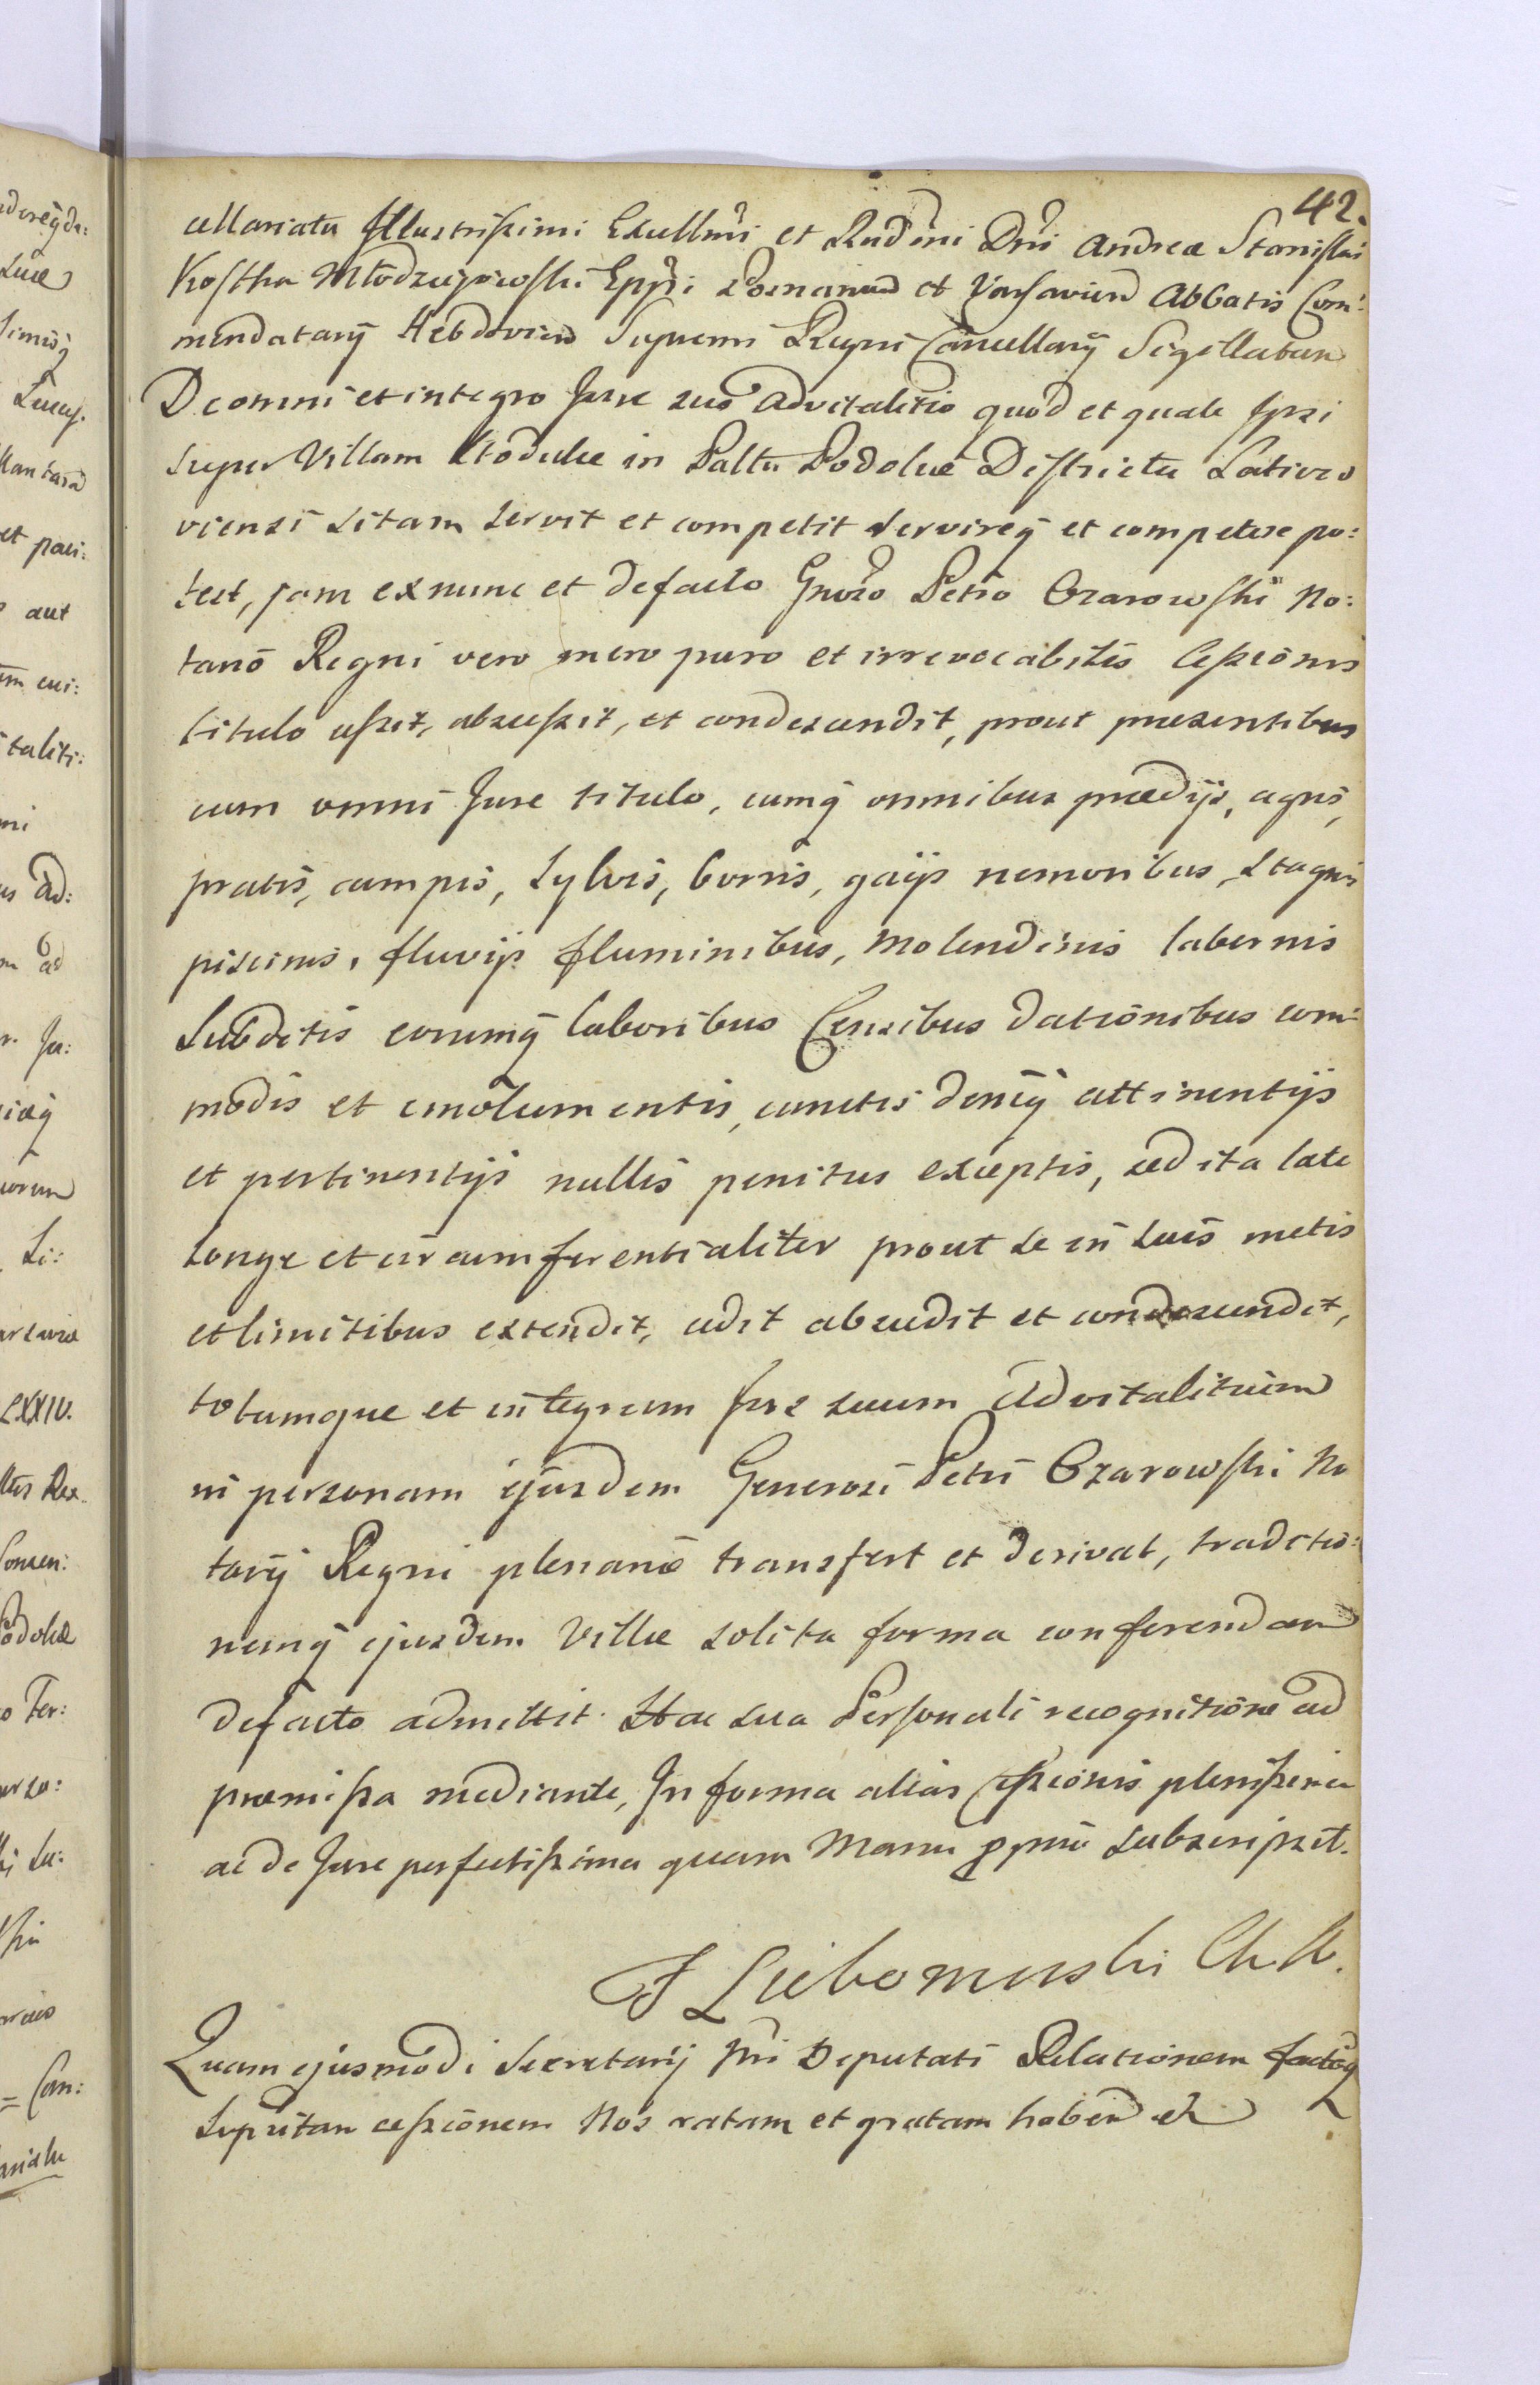 42.
cellariatu Illustrissimi Excellmi et Rndmi Dni Andreæ Stanislai
Kostka Młodzieiowski Eppi Posnanien et Varsavien Abbatis Com:
mendatarÿ Hebdovien Supremi Regni Cancellarÿ Sigillatum
De omni et integro Jure suo Advitalitio quod et quale Ipsi
super Villam in Palttu Podoliæ Districtu Laticzo
viensi sitam servit et competit servireq̃ et competere po:
test, jam ex nunc et defacto Gnoso Petro Ozarowski No:
tario Regni vero mero puro et irrevocabilis Cessionis
titulo cessit, abscessit, et condescendit, prout præsentibus
cum omni Jure titulo, cumq̃ omnibus prædijs, agris,
pratis, campis, sylvis, borris, gaijs nemoribus, stagnis
piscinis, fluvijs fluminibus, Molendinis tabernis
Subditis eorumq̃ laboribus Censibus dationibus com:
modis et emolumentis, cunctis deniq̃ attinentijs
et pertinentijs nullis penitus exceptis, sed ita late
longe et circumferentialiter prout se in suis metis
et limitibus extendit, cedit abscedit et condescendit,
totumque et integrum Jus suum Advitalitium
in personam ejusdem Generosi Petri Ozarowski No
tarÿ Regni plenarie transfert et derivat, traditio:
nemq̃ ejusdem Villæ solita forma conferendam
defacto admittit. Hac sua Personali recognitione ad
præmissa mediante, In forma alias Cessionis plenissima
ac de Jure perfectissima quam Manu ppria subscripsit.
F Lubomirski Ch. K.
Quam ejusmodi Secretarÿ Nri Deputati Relationem factaq̃
Supritam cessionem Nos ratam et gratam haben et